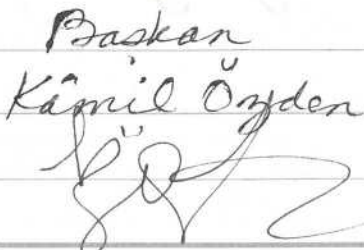 Başkan
Kâmil Özden